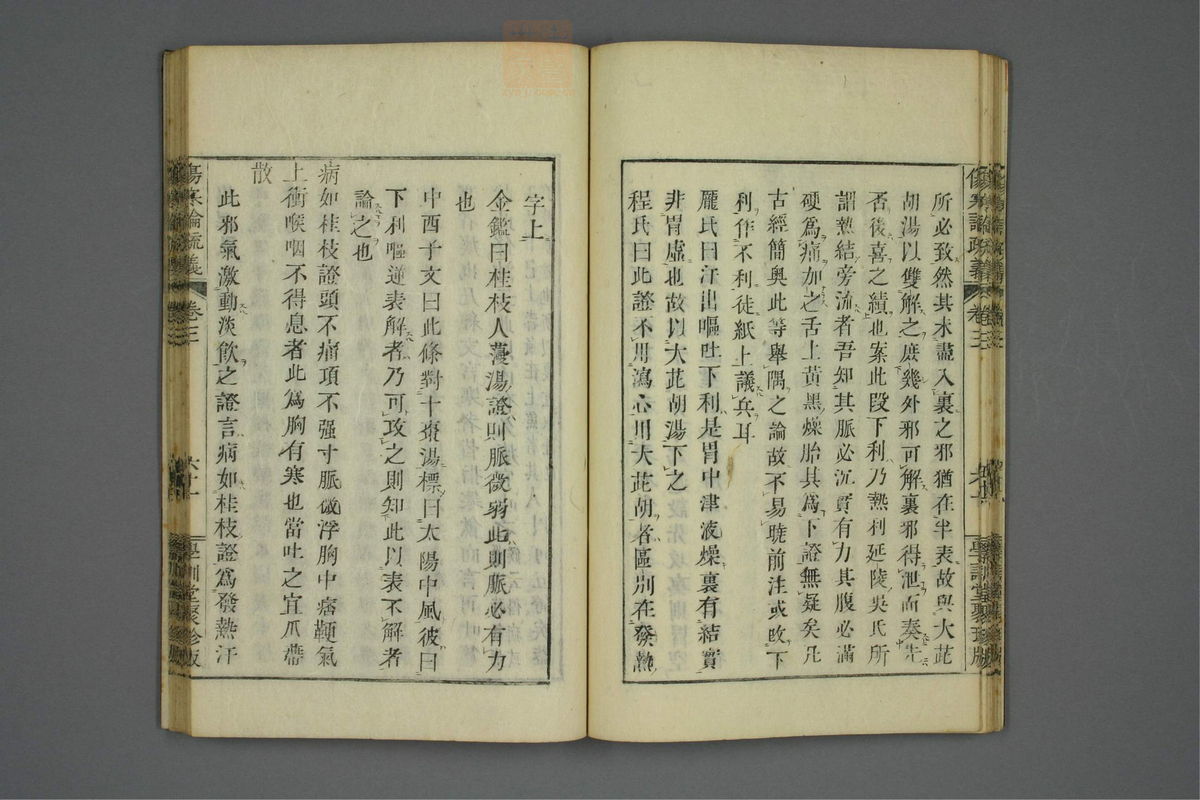 所必致然其未盡入裏之邪猶在半表故與大茈
胡湯以雙解之庶幾外邪可解裏邪得泄而奏先
否後喜之績也案此段下利乃熱利延陵吳氏所
謂熱結旁流者吾知其脈必沉實有力其腹必滿
硬爲痛加之舌上黃黑燥胎其爲下證無疑矣凡
古經簡奧此等舉隅之論故不易曉前注或改下
利作不利徒紙上議兵耳
龐氏曰汗出嘔吐下利是胃中津液燥裏有結實
非胃虛也故以大茈胡湯下之
程氏曰此證不用瀉心用大茈胡者區別在發熱
字上
金鑑曰桂枝人葠湯證則脈微弱此則脈必有力
也
中西子文曰此條對十棗湯標曰太陽中風彼曰
下利嘔逆表解者乃可攻之則知此以表不解者
論之也
病如桂枝證頭不痛項不强寸脈微浮胸中痞鞕氣
上衝喉咽不得息者此爲胸有寒也當吐之宜瓜蔕
散
此邪氣激動淡飮之證言病如桂枝證爲發熱汗
傷寒論疏義
卷三
六十一
學訓堂聚珍版